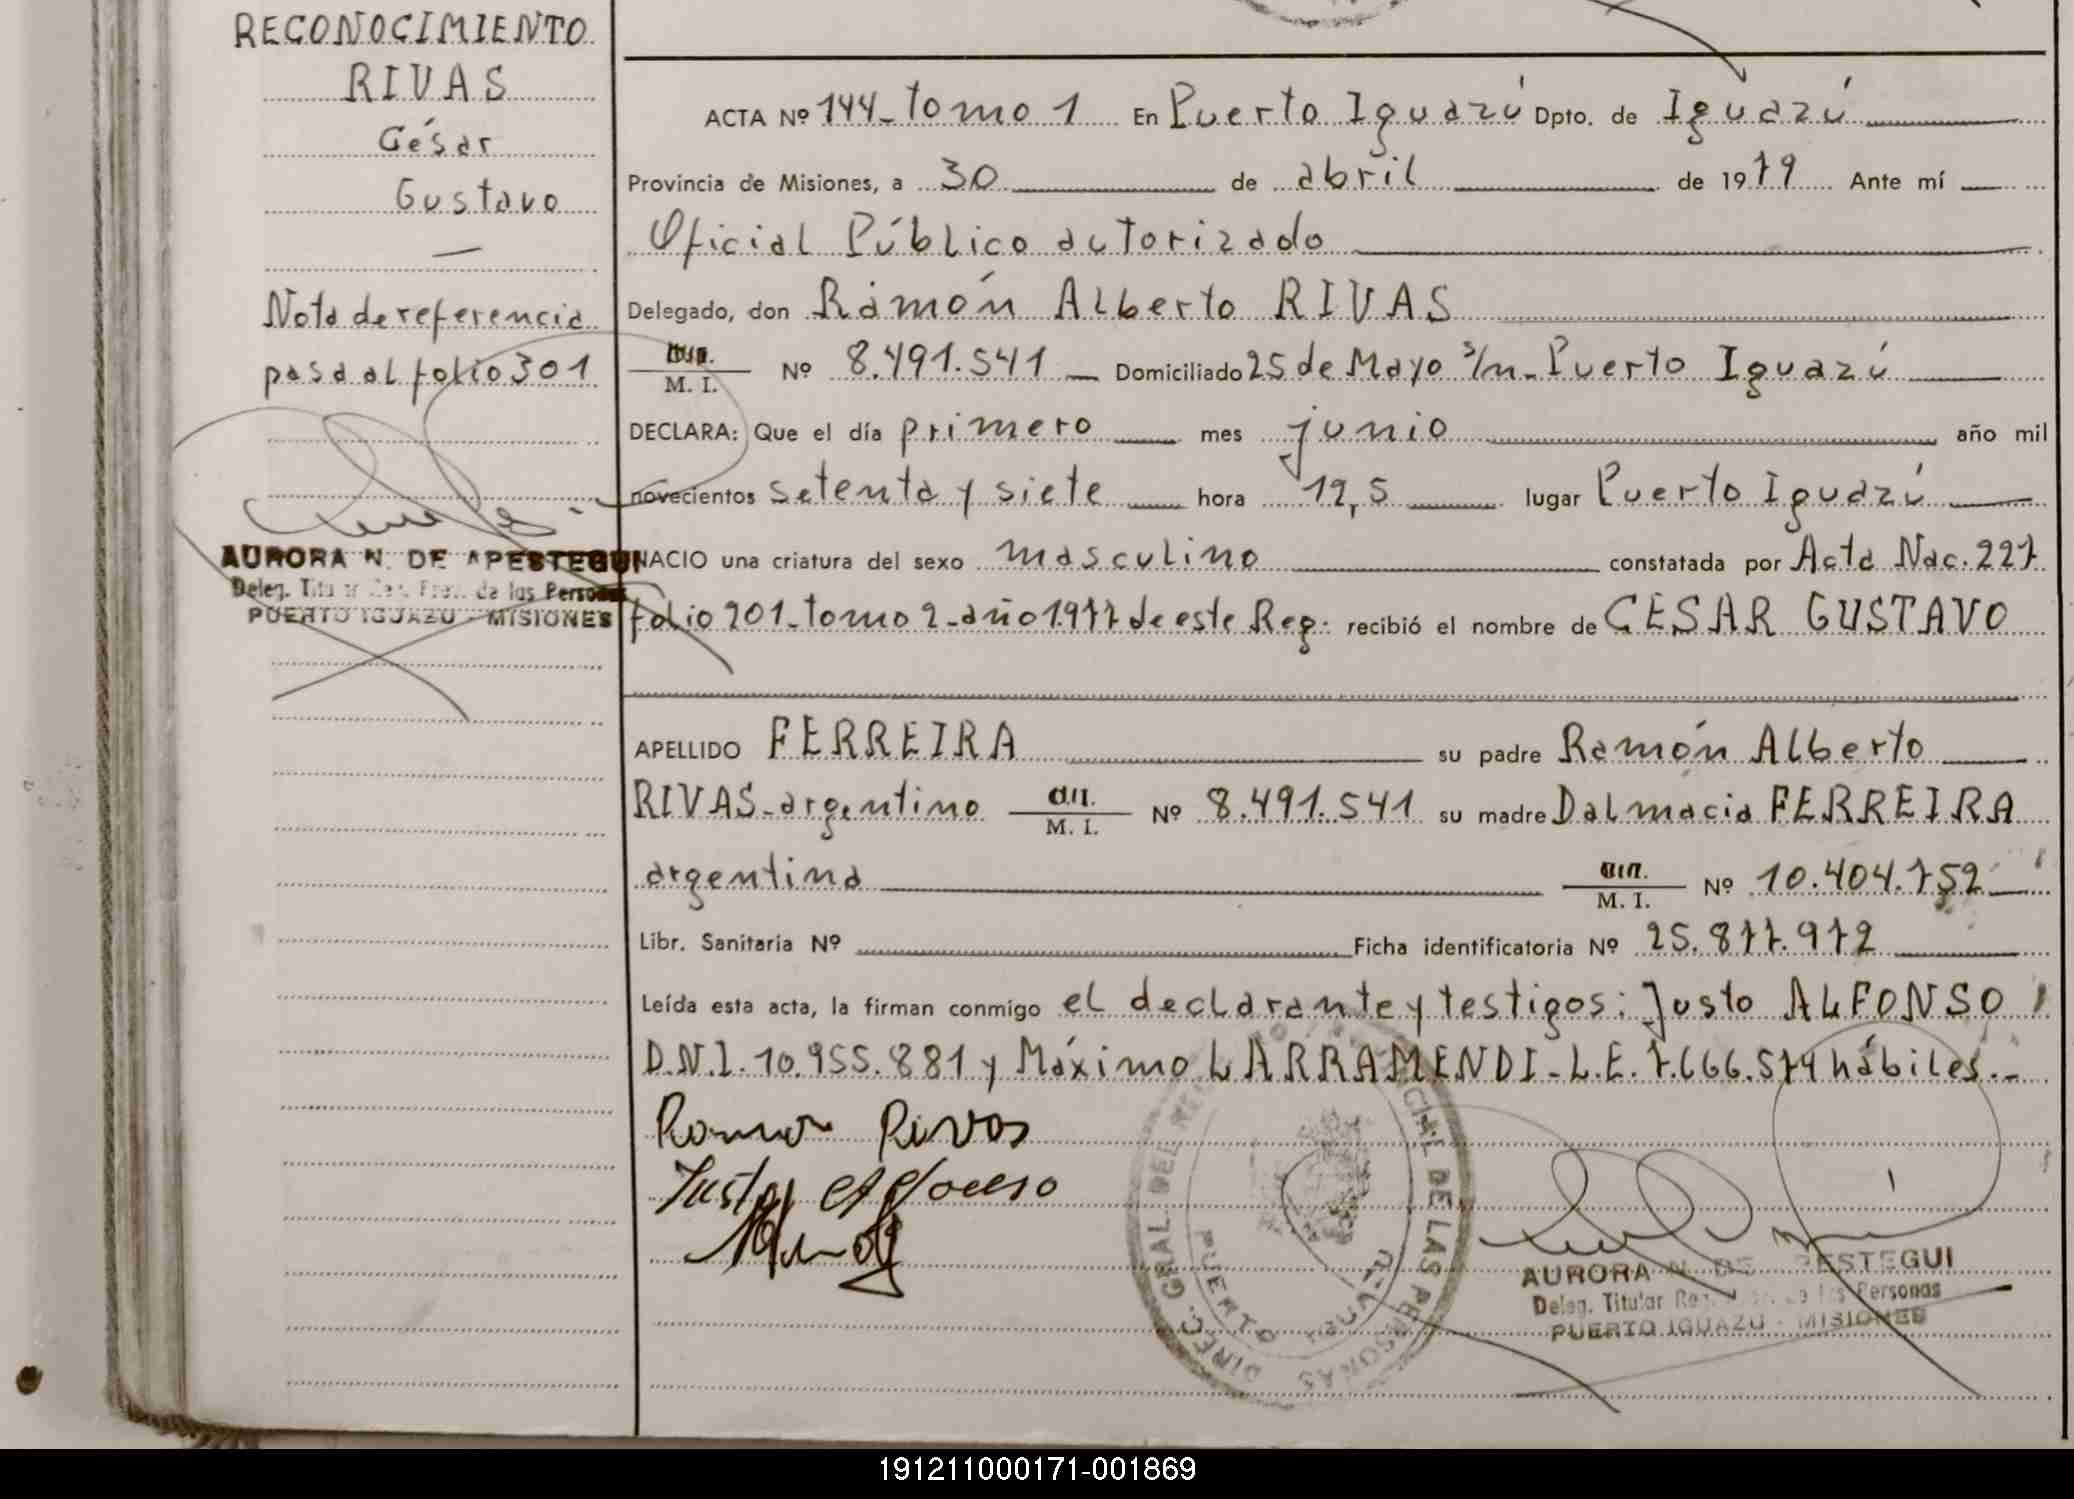 RECONOCIMIENTO
RIVAS
César
Gustavo
—
Nota de referencia
pasa al folio 301
AURORA N. DE APESTEGUI
Deleg. de las Personas
PUERTO IGUAZU - MISIONES
ACTA Nº 144_tomo 1 En Puerto Iguazú Dpto. de Iguazú
Provincia de Misiones, a 30 de abril de 1979 Ante mí
Oficial Público autorizado
Delegado, don Ramón Alberto RIVAS
M. I. Nº 8.491.541 Domiciliado 25 de Mayo s/n_Puerto Iguazú
DECLARA: Que el día primero mes junio año mil
novecientos setenta y siete hora 12,5 lugar Puerto Iguazú
NACIO una criatura del sexo masculino constatada por Acta Nac. 227
folio 201_tomo 2_año 1977 de este Reg: recibió el nombre de CESAR GUSTAVO
APELLIDO FERREIRA su padre Ramón Alberto
RIVAS-argentino M. I. Nº 8.491.541 su madre Dalmacia FERREIRA
argentina M. I. Nº 10.404.752
Libr. Sanitaria Nº Ficha identificatoria Nº 25.877.972
Leída esta acta, la firman conmigo el declarante y testigos: Justo ALFONSO
D.N.I. 10.955.881 y Máximo LARRAMENDI-L.E. 7.666.574 hábiles.-
Ramon Rivas
Justo Alfonso
DIREC. GRAL. DEL REGISTRO PROVINCIAL DE LAS PERSONAS
PUERTO IGUAZU
AURORA N. DE APESTEGUI
Deleg. Titular de las Personas
PUERTO IGUAZU - MISIONES
191211000171-001869